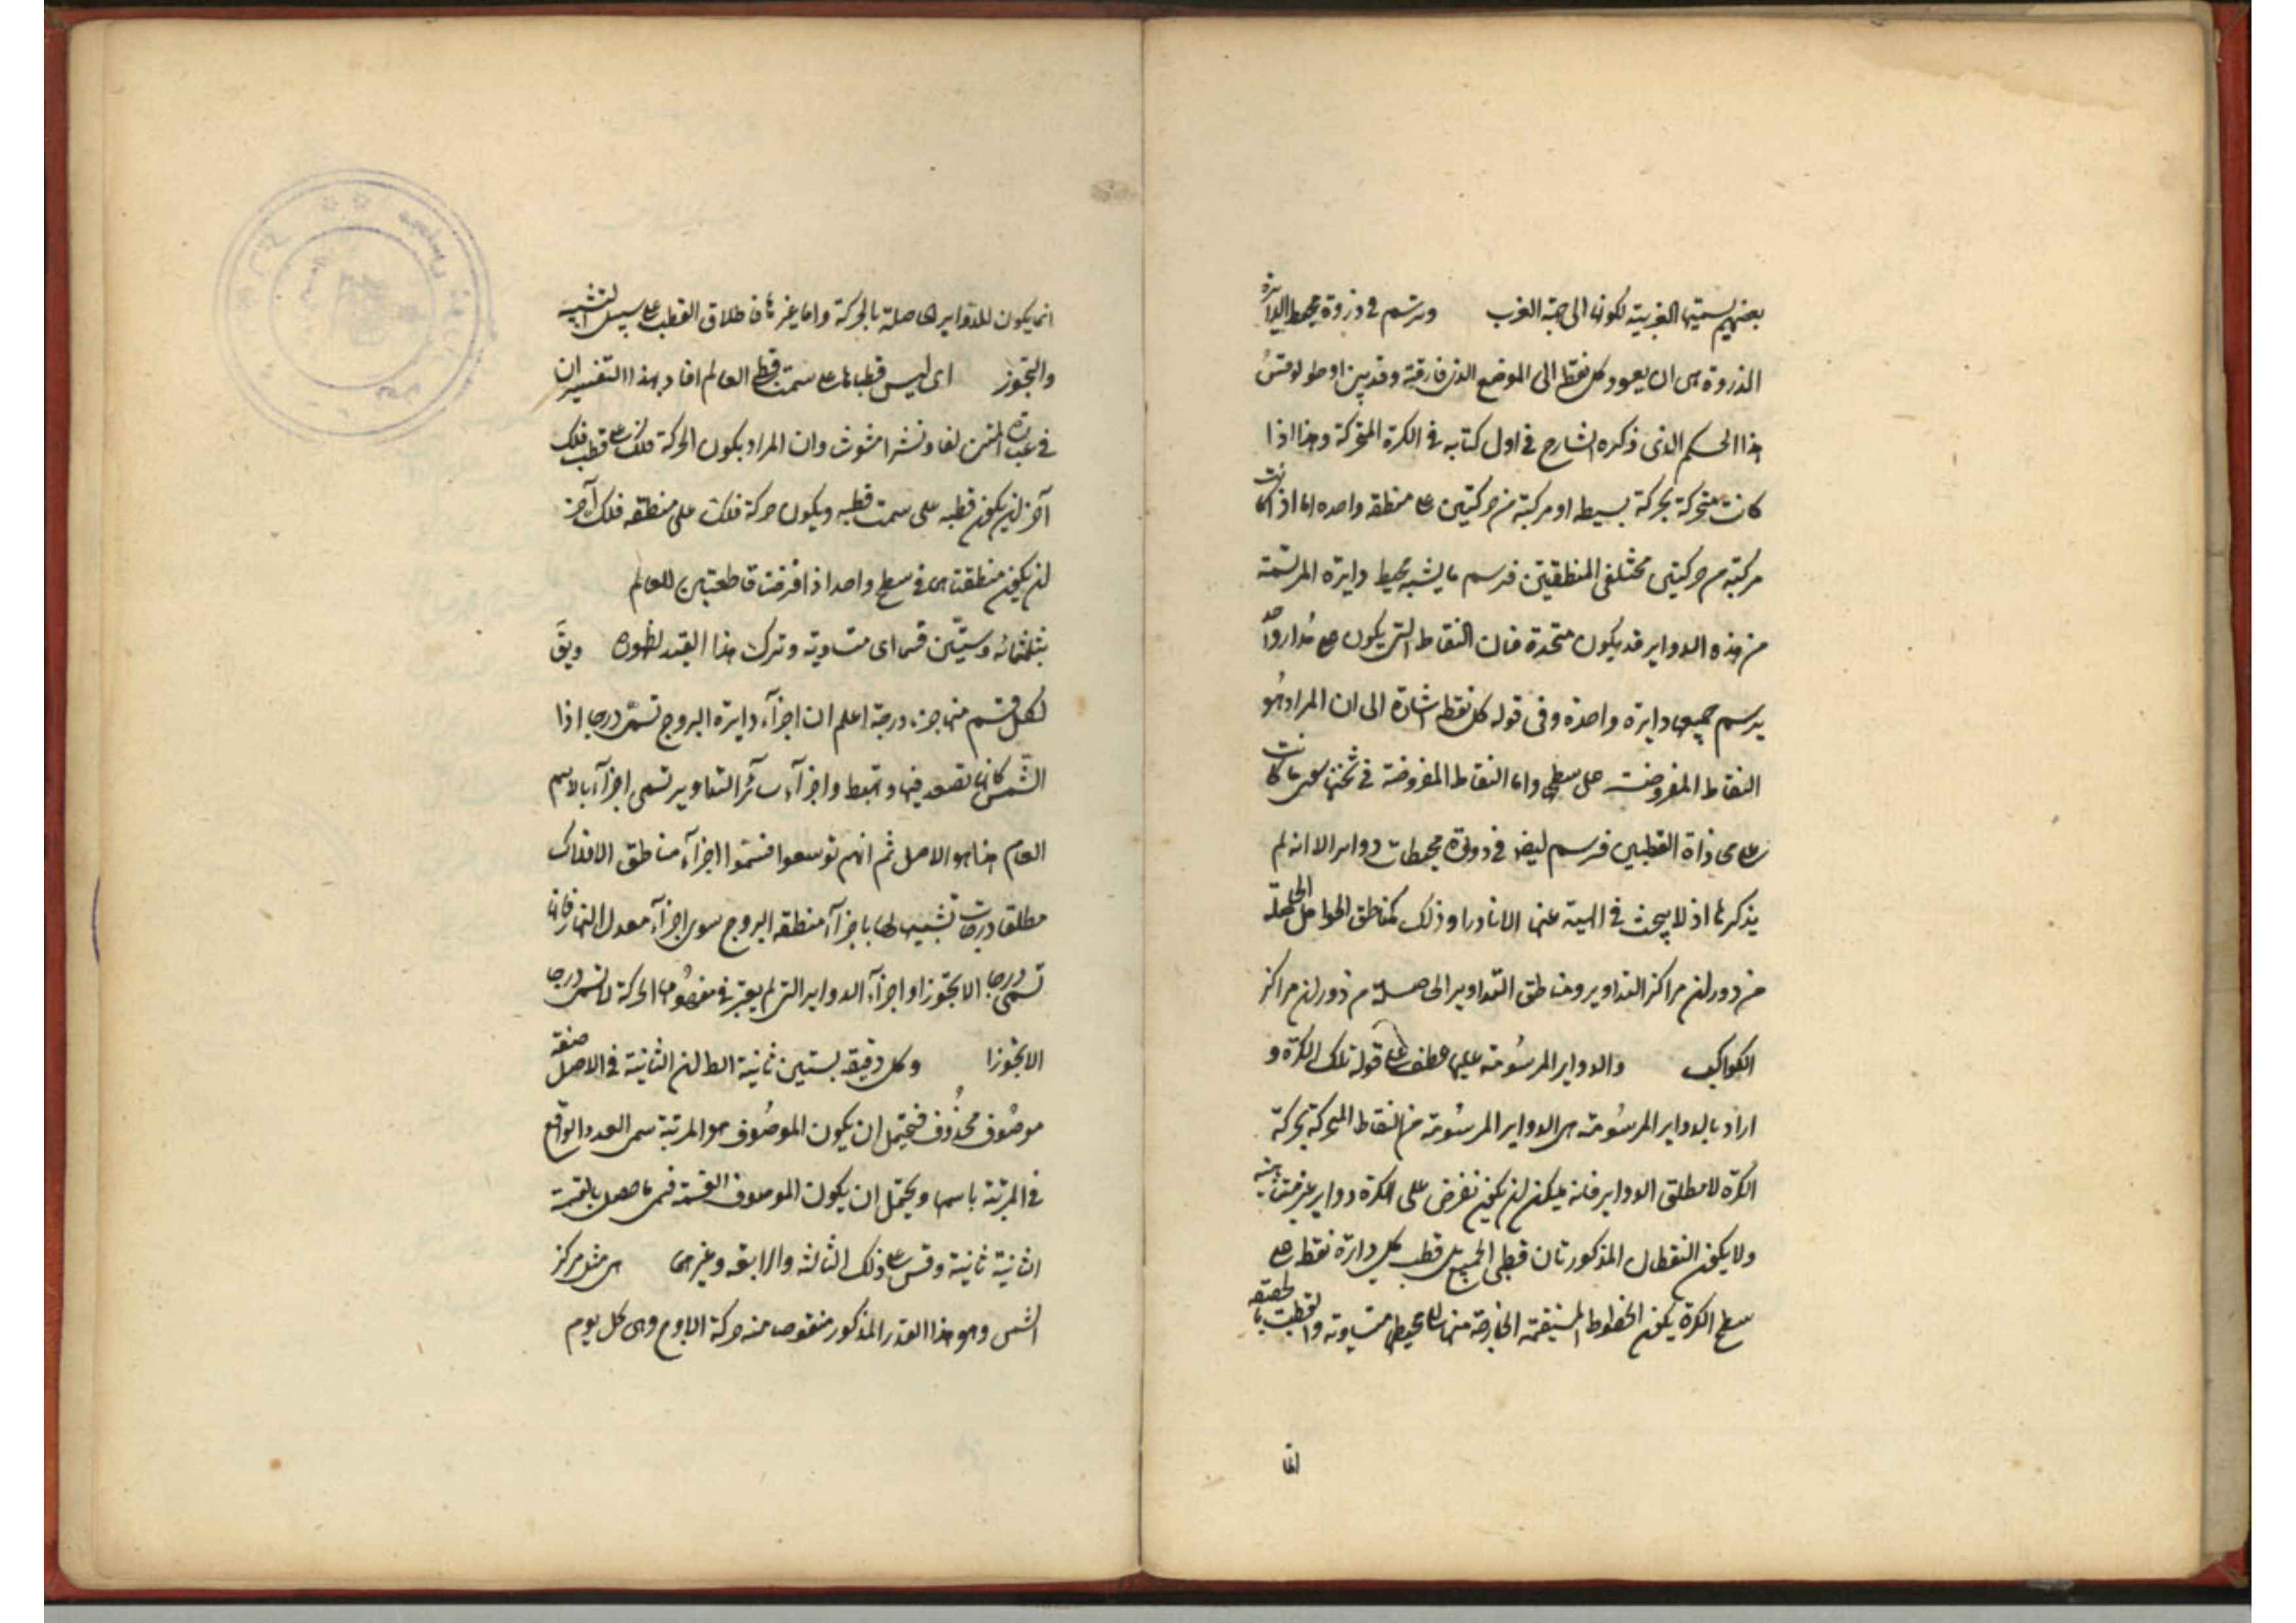 بعضهم يسميها الغربية لكونها الى جهة الغرب وترسم في دورة محيط الدائرة
الدورة هى ان يعود كل نقطة الى الموضع الذى فارقته وقد بين اوطولوقس
هذا الحكم الذى ذكره الشارح في اول كتابه في الكرة المتحركة وهذا اذا
كانت متحركة بحركة بسيطه او مركبة من حركتين على منطقه واحده اما اذا كانت
مركبة من حركتين مختلفى المنطقتين فترسم ما يشبه محيط دايرة المرتسمة
من هذه الدواير قد يكون متحدة فان النقاط التى يكون على مدار واحد
يرسم جميعها دايرة واحدة وفى قوله كل نقطة اشارة الى ان المراد هو
النقاط المفروضة على سطحها واما النقاط المفروضة في ثخنها سوى ما كانت
على محاذاة القطبين فترسم ايضا في دورة محيطات دواير الا انه لم
يذكرها اذ لا يبحث في الهيئة عنها الا نادرا وذلك كمناطق الحوامل الحاصلة
من دوران مراكز التداوير ومناطق التداوير الحاصلة من دوران مراكز
الكواكب والدواير المرسومة عليها عطف على قوله تلك الكرة و
اراد بالدواير المرسومة هى الدواير المرسومة من النقاط المتحركة بحركة
الكرة لا مطلق الدواير فانه يمكن ان يكون نفرض على الكرة دواير غير متناهية
ولا يكون النقطتان المذكورتان قطبى الجميع بل قطب كل دايرة نقطة على
سطح الكرة يكون الخطوط المستقيمة الخارجة منها الى محيطها متساوية والقطب بالحقيقة
انما
انما يكون للدواير الحاصلة بالحركة واما غيرها فاطلاق القطب على سبيل التشبيه
والتجوز اى ليس قطباها على سمت قطبى العالم افاد بهذا التفسير ان
في عبارة المتن لفا ونشرا مشوشا وان المراد بكون الحركة فلك على قطب فلك
آخر ان يكون قطبه على سمت قطبه ويكون حركة فلك على منطقه فلك آخر
ان يكون منطقتاهما في سطح واحد اذا فرضت قاطعتين للعالم
بثلثمائه وستين قسما اى متساوية وترك هذا القيد لظهوره ويق
لكل قسم منها جزء ودرجة اعلم ان اجزاء دايرة البروج تسمى درجا اذا
الشمس كانها تصعد فيها وتهبط واجزاء سائر التداوير تسمى اجزاء بالاسم
العام هذا هو الاصل ثم انهم توسعوا فسموا اجزاء مناطق الافلاك
مطلقا درجات تشبيها لها باجزاء منطقه البروج سوى اجزاء معدل النهار فانها لا
تسمى درجا الا تجوزا واجزاء الدواير التى لم يعتبر في مفهومها الحركة لا تسمى درجا
الا تجوزا وكل دقيقة بستين ثانية الظ ان الثانية في الاصل صفة
موصوف محذوف فيحتمل ان يكون الموصوف هو المرتبة سمى العدد الواقع
في المرتبة باسمها ويحتمل ان يكون الموصوف القسمة فسمى ما حصل بالقسمة
الثانية ثانية وقس على ذلك الثالثة والرابعة وغيرهما هى مثل مركز
الشمس وهو هذا القدر المذكور منقوصا منه حركة الاوج وهى كل يوم